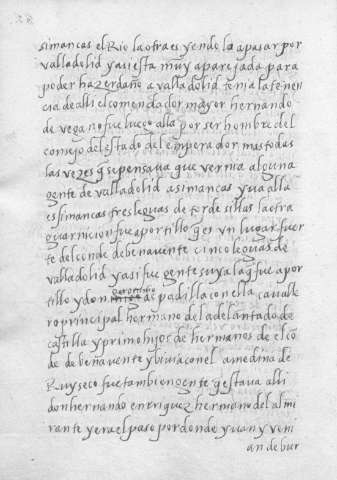 simancas el Rio la otra es yendo la a pasar por
valladolid y asi esta muy aparejada para
poder hazer daño a valladolid tenia la tenen
cia de alli el comendador mayor hernando
de vega no fue luego alla por ser hombre del
consejo del estado del emperador mas todas
las vezes q se pensava que vernia alguna
gente de valladolid a simancas yva alla
es simancas tres leguas de tordesillas la otra
guarnicion fue a portillo q es un lugar fuer
te del conde de benavente cinco leguas de
valladolid y asi fue gente suya la q fue a por
tillo y don de padilla con ella cavalle
ro principal hermano del adelantado de
castilla y primo hijos de hermanos de el co
de de beñavente y bivia con el a medina de
Ruyseco fue tambien gente q estava alli
don hernando enrriquez hermano del almi
rante y era el paso por donde yvan y veni
an de bur